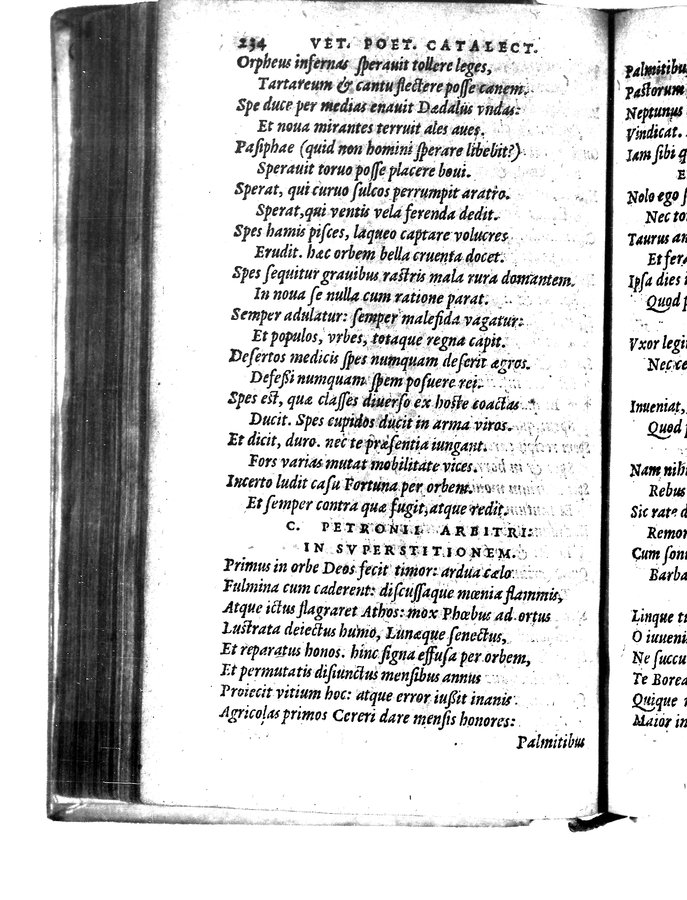 234 VET. POET. CATALECT.
Orpheus infernas sperauit tollere leges,
Tartareum & cantu flectere posse canem.
Spe duce per medias enauit Dædalus vndas:
Et noua mirantes terruit ales aues.
Pasiphae (quid non homini sperare libebit?)
Sperauit toruo posse placere boui.
Sperat, qui curuo sulcos perrumpit aratro.
Sperat, qui ventis vela ferenda dedit.
Spes hamis pisces, laqueo captare volucres
Erudit. hac orbem bella cruenta docet.
Spes sequitur grauibus rastris mala rura domantem.
In noua se nulla cum ratione parat.
Semper adulatur: semper malefida vagatur:
Et populos, vrbes, totaque regna capit.
Desertos medicis spes numquam deserit ægros.
Defessi numquam spem posuere rei.
Spes est, quæ classes diuerso ex hoste coactas
Ducit. Spes cupidos ducit in arma viros.
Et dicit, duro. nec te præsentia iungant.
Fors varias mutat mobilitate vices.
Incerto ludit casu Fortuna per orbem.
Et semper contra quæ fugit, atque redit.
C. PETRONII ARBITRI:
IN SVPERSTITIONEM.
Primus in orbe Deos fecit timor: ardua cælo
Fulmina cum caderent: discussaque mœnia flammis,
Atque ictus flagraret Athos: mox Phœbus ad ortus
Lustrata deiectus humo, Lunæque senectus,
Et reparatus honos. hinc signa effusa per orbem,
Et permutatis disiunctus mensibus annus
Proiecit vitium hoc: atque error iussit inanis
Agricolas primos Cereri dare mensis honores:
Palmitibus
Palmitibu
Pastorum
Neptunus
Vindicat.
Iam sibi q
E
Nolo ego s
Nec to
Taurus an
Et fer
Ipsa dies i
Quod p
Vxor legi
Nec ce
Inueniat,
Quod p
Nam nihi
Rebus
Sic rate d
Remor
Cum son
Barba
Linque tu
O iuueni
Ne succu
Te Borea
Quique
Maior in